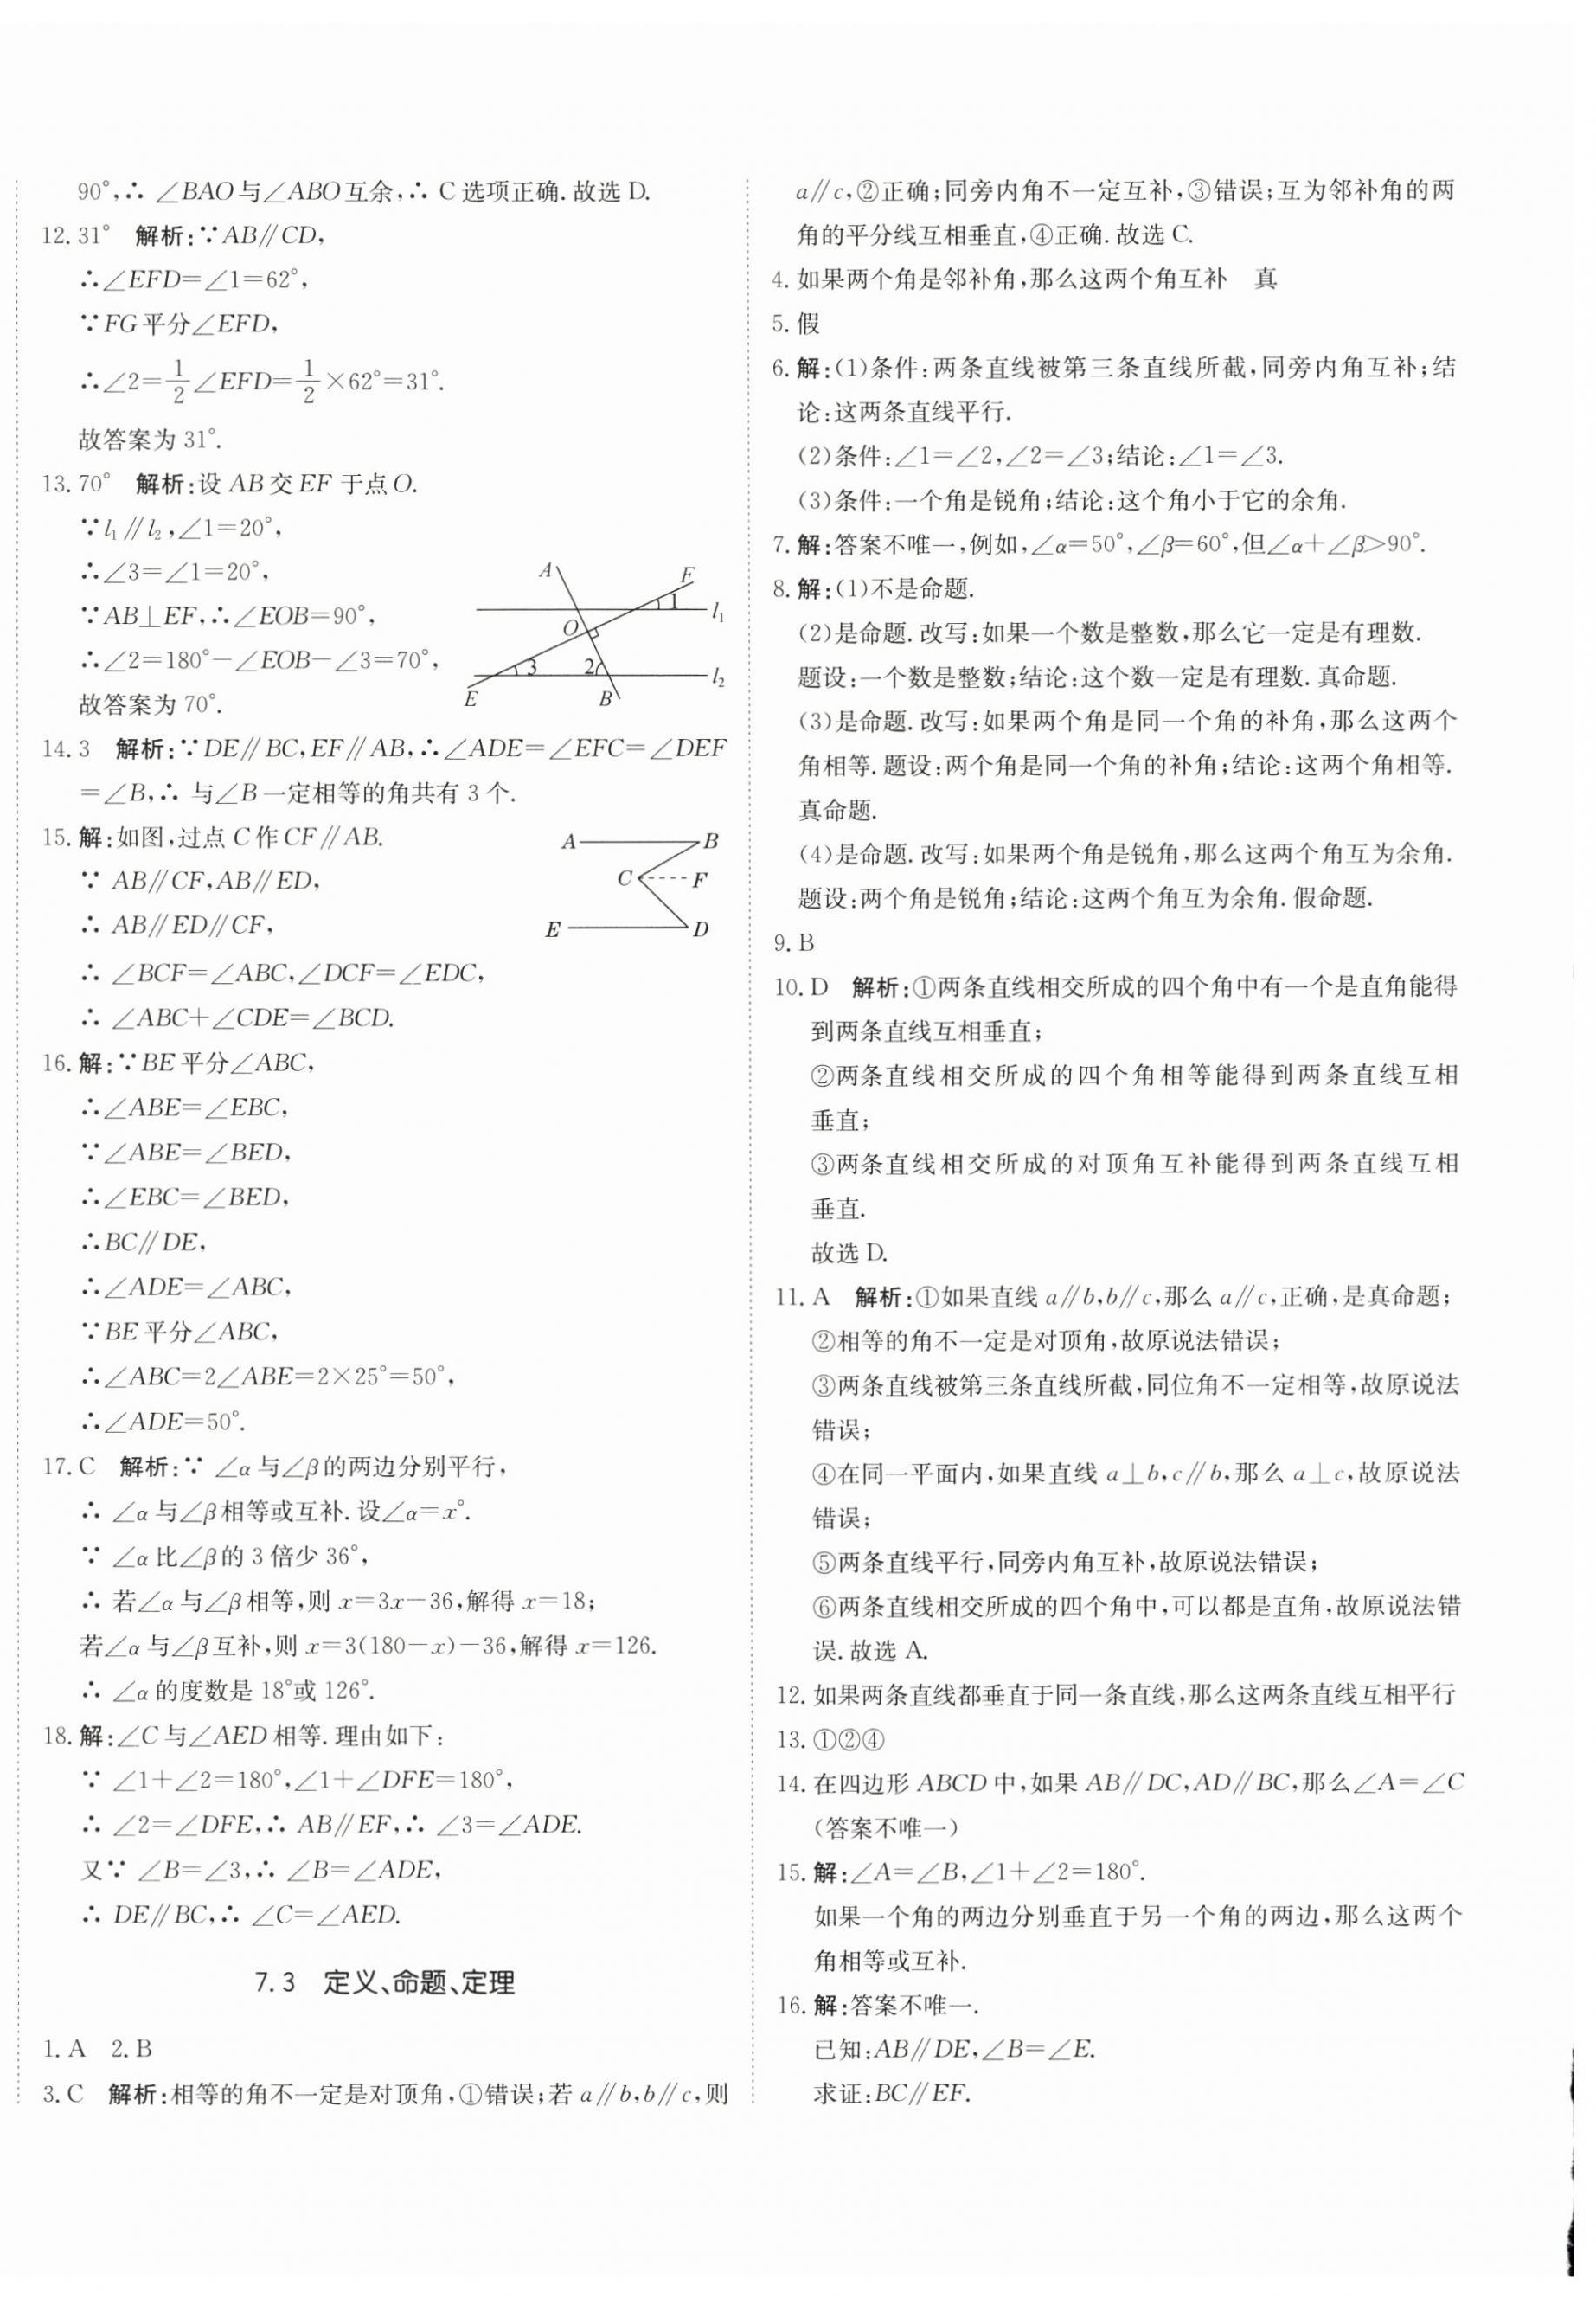 90°,∴ ∠BAO与∠ABO互余,∴ C选项正确.故选D.
12. 31° 解析:∵AB∥CD,
∴∠EFD=∠1=62°,
∵FG平分∠EFD,
∴∠2=1/2∠EFD=1/2×62°=31°.
故答案为31°.
13. 70° 解析:设AB交EF于点O.
∵l₁∥l₂,∠1=20°,
∴∠3=∠1=20°,
∵AB⊥EF,∴∠EOB=90°,
∴∠2=180°-∠EOB-∠3=70°,
故答案为70°.
A
F
1
l₁
O
3
2
l₂
E
B
14. 3 解析:∵DE∥BC,EF∥AB,∴∠ADE=∠EFC=∠DEF
=∠B,∴ 与∠B一定相等的角共有3个.
15. 解:如图,过点C作CF∥AB.
∵ AB∥CF,AB∥ED,
∴ AB∥ED∥CF,
∴ ∠BCF=∠ABC,∠DCF=∠EDC,
∴ ∠ABC+∠CDE=∠BCD.
A B
C F
E D
16. 解:∵BE平分∠ABC,
∴∠ABE=∠EBC,
∵∠ABE=∠BED,
∴∠EBC=∠BED,
∴BC∥DE,
∴∠ADE=∠ABC,
∵BE平分∠ABC,
∴∠ABC=2∠ABE=2×25°=50°,
∴∠ADE=50°.
17. C 解析:∵ ∠α与∠β的两边分别平行,
∴ ∠α与∠β相等或互补.设∠α=x°.
∵ ∠α比∠β的3倍少36°,
∴ 若∠α与∠β相等,则x=3x-36,解得x=18;
若∠α与∠β互补,则x=3(180-x)-36,解得x=126.
∴ ∠α的度数是18°或126°.
18. 解:∠C与∠AED相等.理由如下:
∵ ∠1+∠2=180°,∠1+∠DFE=180°,
∴ ∠2=∠DFE,∴ AB∥EF,∴ ∠3=∠ADE.
又∵ ∠B=∠3,∴ ∠B=∠ADE,
∴ DE∥BC,∴ ∠C=∠AED.
7.3 定义、命题、定理
1. A 2. B
3. C 解析:相等的角不一定是对顶角,①错误;若a∥b,b∥c,则
a∥c,②正确;同旁内角不一定互补,③错误;互为邻补角的两
角的平分线互相垂直,④正确.故选C.
4. 如果两个角是邻补角,那么这两个角互补 真
5. 假
6. 解:(1)条件:两条直线被第三条直线所截,同旁内角互补;结
论:这两条直线平行.
(2)条件:∠1=∠2,∠2=∠3;结论:∠1=∠3.
(3)条件:一个角是锐角;结论:这个角小于它的余角.
7. 解:答案不唯一,例如,∠α=50°,∠β=60°,但∠α+∠β>90°.
8. 解:(1)不是命题.
(2)是命题.改写:如果一个数是整数,那么它一定是有理数.
题设:一个数是整数;结论:这个数一定是有理数.真命题.
(3)是命题.改写:如果两个角是同一个角的补角,那么这两个
角相等.题设:两个角是同一个角的补角;结论:这两个角相等.
真命题.
(4)是命题.改写:如果两个角是锐角,那么这两个角互为余角.
题设:两个角是锐角;结论:这两个角互为余角.假命题.
9. B
10. D 解析:①两条直线相交所成的四个角中有一个是直角能得
到两条直线互相垂直;
②两条直线相交所成的四个角相等能得到两条直线互相
垂直;
③两条直线相交所成的对顶角互补能得到两条直线互相
垂直.
故选D.
11. A 解析:①如果直线a∥b,b∥c,那么a∥c,正确,是真命题;
②相等的角不一定是对顶角,故原说法错误;
③两条直线被第三条直线所截,同位角不一定相等,故原说法
错误;
④在同一平面内,如果直线a⊥b,c∥b,那么a⊥c,故原说法
错误;
⑤两条直线平行,同旁内角互补,故原说法错误;
⑥两条直线相交所成的四个角中,可以都是直角,故原说法错
误.故选A.
12. 如果两条直线都垂直于同一条直线,那么这两条直线互相平行
13. ①②④
14. 在四边形ABCD中,如果AB∥DC,AD∥BC,那么∠A=∠C
(答案不唯一)
15. 解:∠A=∠B,∠1+∠2=180°.
如果一个角的两边分别垂直于另一个角的两边,那么这两个
角相等或互补.
16. 解:答案不唯一.
已知:AB∥DE,∠B=∠E.
求证:BC∥EF.